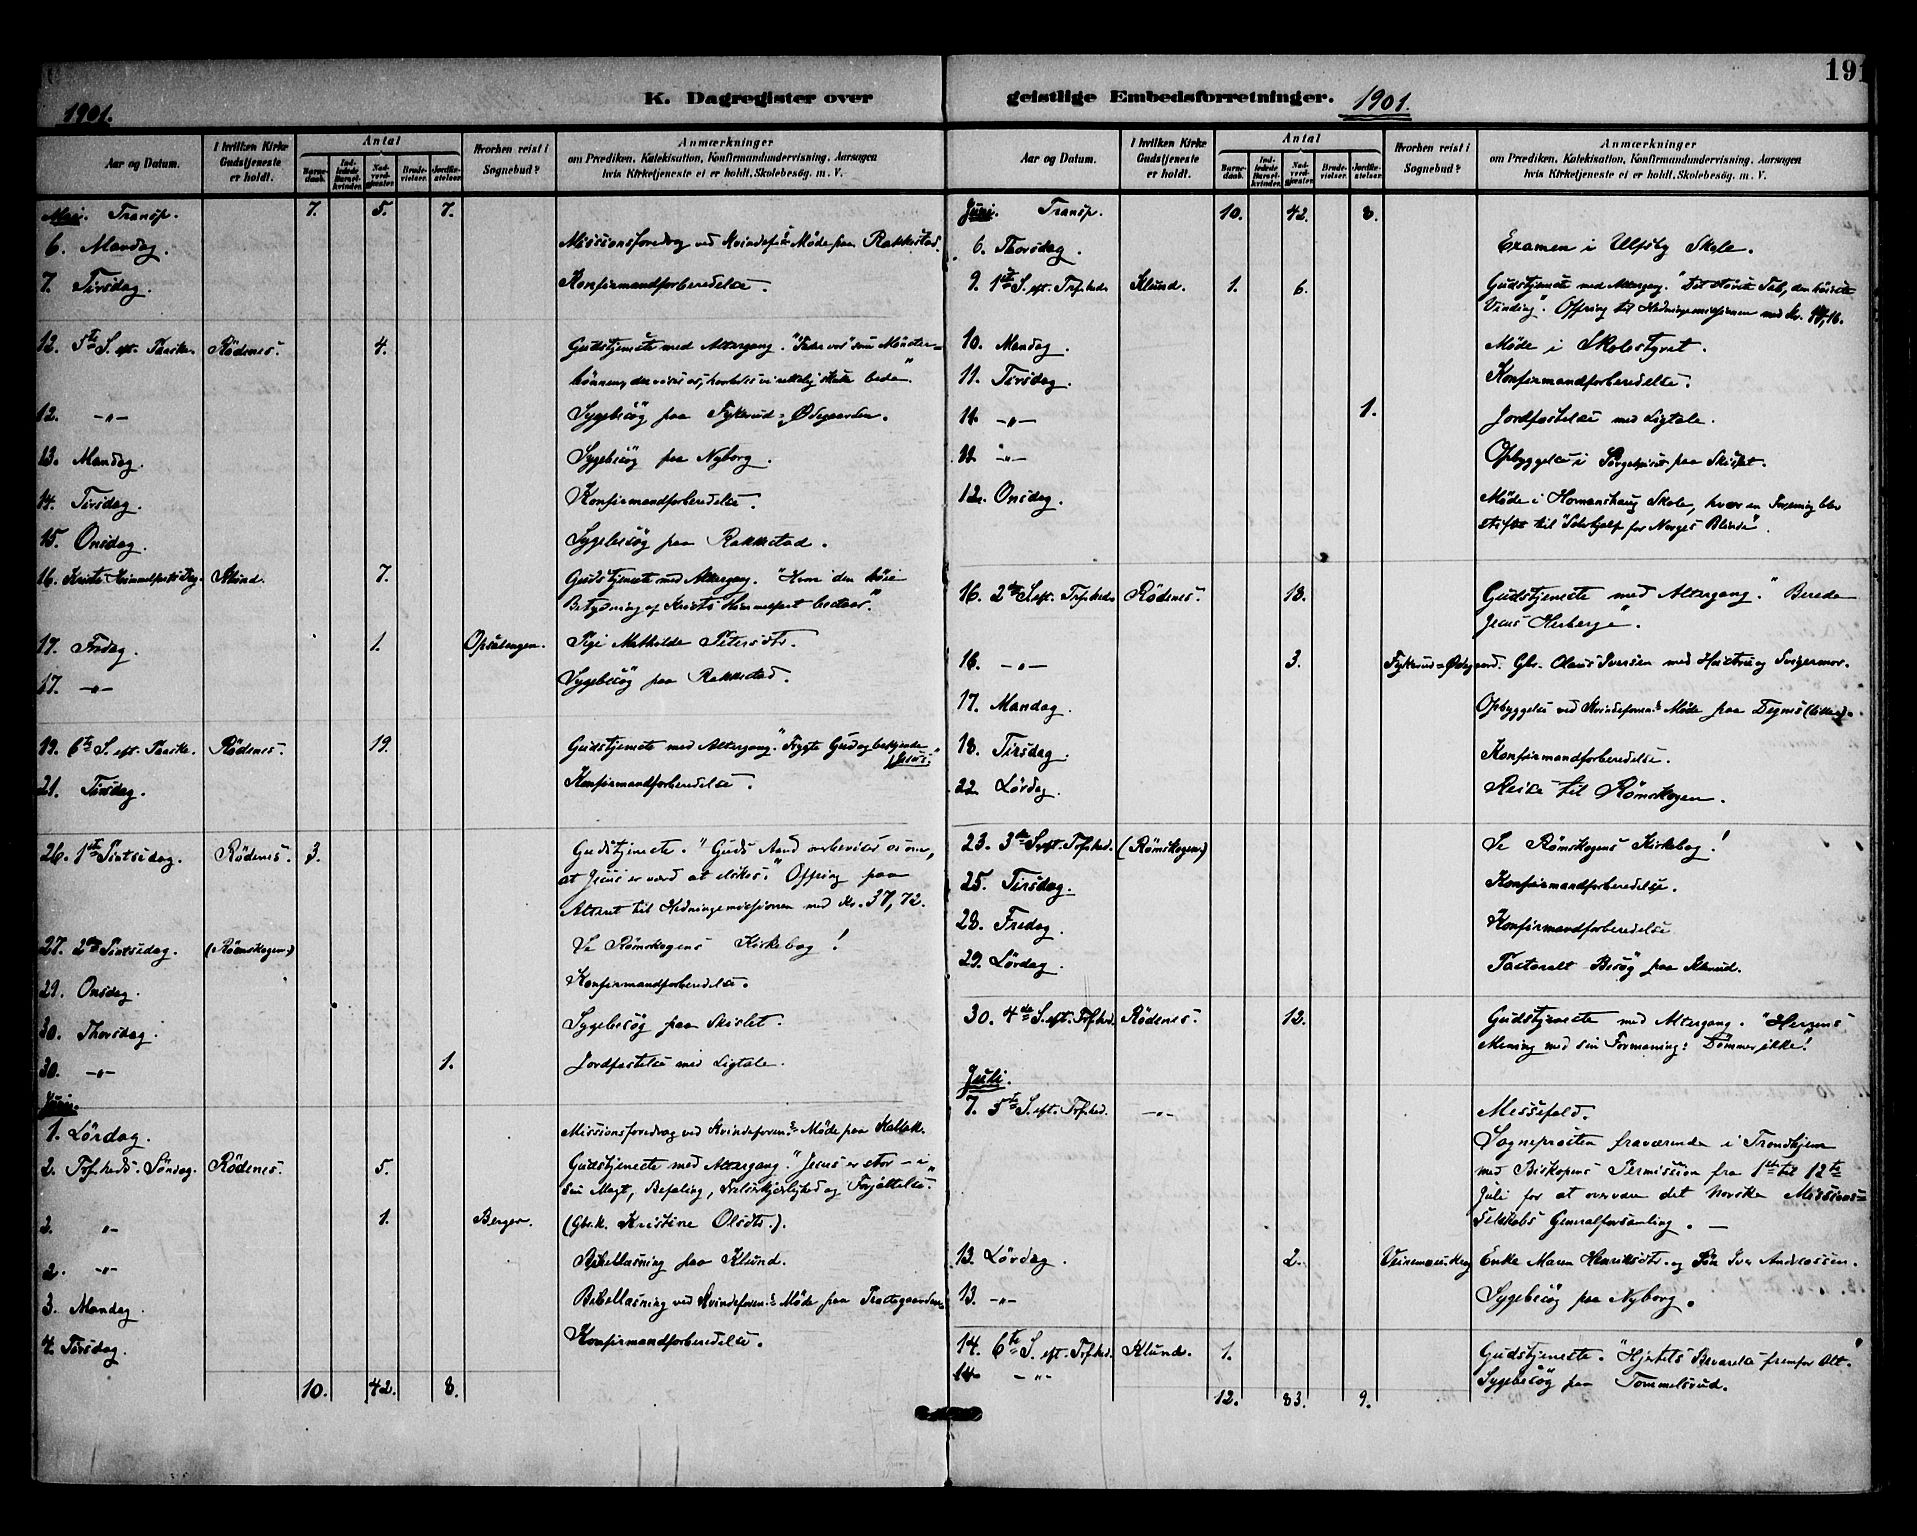 191
K. Dagregister over geistlige Embedsforretninger. 1901.
1901.
Aar og Datum.
I hvilken Kirke Gudstjeneste er holdt.
Antal
Barnedaab.
Indledede Barselkvinder.
Nadverdgjæster.
Brudevielser.
Jordfæstelser.
Hvorhen reist i Sognebud?
Anmærkninger
om Prædiken, Katekisation, Konfirmandundervisning, Aarsagen
hvis Kirketjeneste ei er holdt, Skolebesøg, m. V.
Mai. Transp. 7. 5. 7.
6. Mandag. Missionsforedrag ved Kvindefs Møde paa Rakkestad.
7. Tirsdag. Konfirmandforberedelse.
12. 5te S. eft. Paaske. Rödenes. 4. Gudstjeneste med Altergang. "Fader vor" som Mønster-
bønnen, der viser os, hvorledes vi rettelig skulle bede."
12. -"- Sygebesøg paa Fykerud-Ødegaarden.
13. Mandag. Sygebesøg paa Nyborg.
14. Tirsdag. Konfirmandforberedelse.
15. Onsdag. Sygebesøg paa Rakkestad.
16. Kristi Himmelfarts Dag. Klund. 7. Gudstjeneste med Altergang. "Hvori den høie
Betydning af Kristi Himmelfart bestaar."
17. Fredag. 1. Opsalengen. Pige Mathilde Petersdtr.
17. -"- Sygebesøg paa Rakkestad.
19. 6te S. eft. Paaske. Rödenes. 19. Gudstjeneste med Altergang. "Frygte Gud og bekjende
Jesus."
21. Tirsdag. Konfirmandforberedelse.
26. 1ste Pintsedag. Rödenes. 3. Gudstjeneste. "Guds Aand overbeviser os om,
at Jesus er værd at elskes." Offring paa
Alteret til Hedningemissionen med Kr. 37,72.
27. 2den Pintsedag. (Römskogen) Se Römskogens Kirkebog!
29. Onsdag. Konfirmandforberedelse.
30. Thorsdag. Sygebesøg paa Skislet.
30. -"- 1. Jordfæstelse med Ligtale.
Juni.
1. Lördag. Missionsforedrag ved Kvindeforens Møde paa Kallak.
2. Tref.heds-Söndag. Rödenes. 5. Gudstjeneste med Altergang. "Jesus er stor - i
sin Magt, Befaling, Frelserkjærlighed og Forjættelse."
2. -"- 1. Berger. (Gbr.k. Kristine Olsdtr.).
2. -"- Bibellæsning paa Klund.
3. Mandag. Bibellæsning ved Kvindeforens Møde paa Præstegaarden.
4. Tirsdag. Konfirmandforberedelse.
10. 42. 8.
Aar og Datum.
I hvilken Kirke Gudstjeneste er holdt.
Antal
Barnedaab.
Indledede Barselkvinder.
Nadverdgjæster.
Brudevielser.
Jordfæstelser.
Hvorhen reist i Sognebud?
Anmærkninger
om Prædiken, Katekisation, Konfirmandundervisning, Aarsagen
hvis Kirketjeneste ei er holdt, Skolebesøg, m. V.
Juni. Transp. 10. 42. 8.
6. Thorsdag. Examen i Ulfsby Skole.
9. 1ste S. eft. Tref.hed. Klund. 1. 6. Gudstjeneste med Altergang. "Det største Tab, den største
Vinding". Offring til Hedningemissionen med Kr. 14,16.
10. Mandag. Møde i Skolestyret.
11. Tirsdag. Konfirmandforberedelse.
11. -"- 1. Jordfæstelse med Ligtale.
11. -"- Opbyggelse i Sørgehuset paa Skislet.
12. Onsdag. Møde i Homanshaug Skole, hvor en Forening blev
stiftet til "Selvhjælp for Norges Blinde".
16. 2den S. eft. Tref.hed. Rödenes. 18. Gudstjeneste med Altergang. "Berede
Jesus Herberge".
16. -"- 3. Fykerud-Ødegaard. Gbr. Olaus Iversen med Hustru og Svigermor.
17. Mandag. Opbyggelse ved Kvindeforens Møde paa Degnes
18. Tirsdag. Konfirmandforberedelse.
22. Lördag. Reise til Römskogen.
23. 3die S. eft. Tref.hed. (Römskogen) Se Römskogens Kirkebog!
25. Tirsdag. Konfirmandforberedelse.
28. Fredag. Konfirmandforberedelse
29. Lördag. Pastoralt Besøg paa Klund.
30. 4de S. eft. Tref.hed. Rödenes. 12. Gudstjeneste med Altergang. "Herrens
Mening med sin Formaning: Dömmer ikke!"
Juli.
7. 5te S. eft. Tref.hed. -"- Messefald.
Sogneprästen fraværende i Trondhjem
med Biskopens Permission fra 1ste til 12te
Juli for at overvære det norske Missions-
Selskabs Generalforsamling. -
13. Lördag. 2. Enke Maren Henriksdtr. og Søn Iver Andreassen.
13. -"- Sygebesøg paa Nyborg.
14. 6te S. eft. Tref.hed. Klund. 1. Gudstjeneste. "Hjertets Bevarelse fremfor Alt."
14. -"- Sygebesøg paa Tommelsrud.
12. 83. 9.